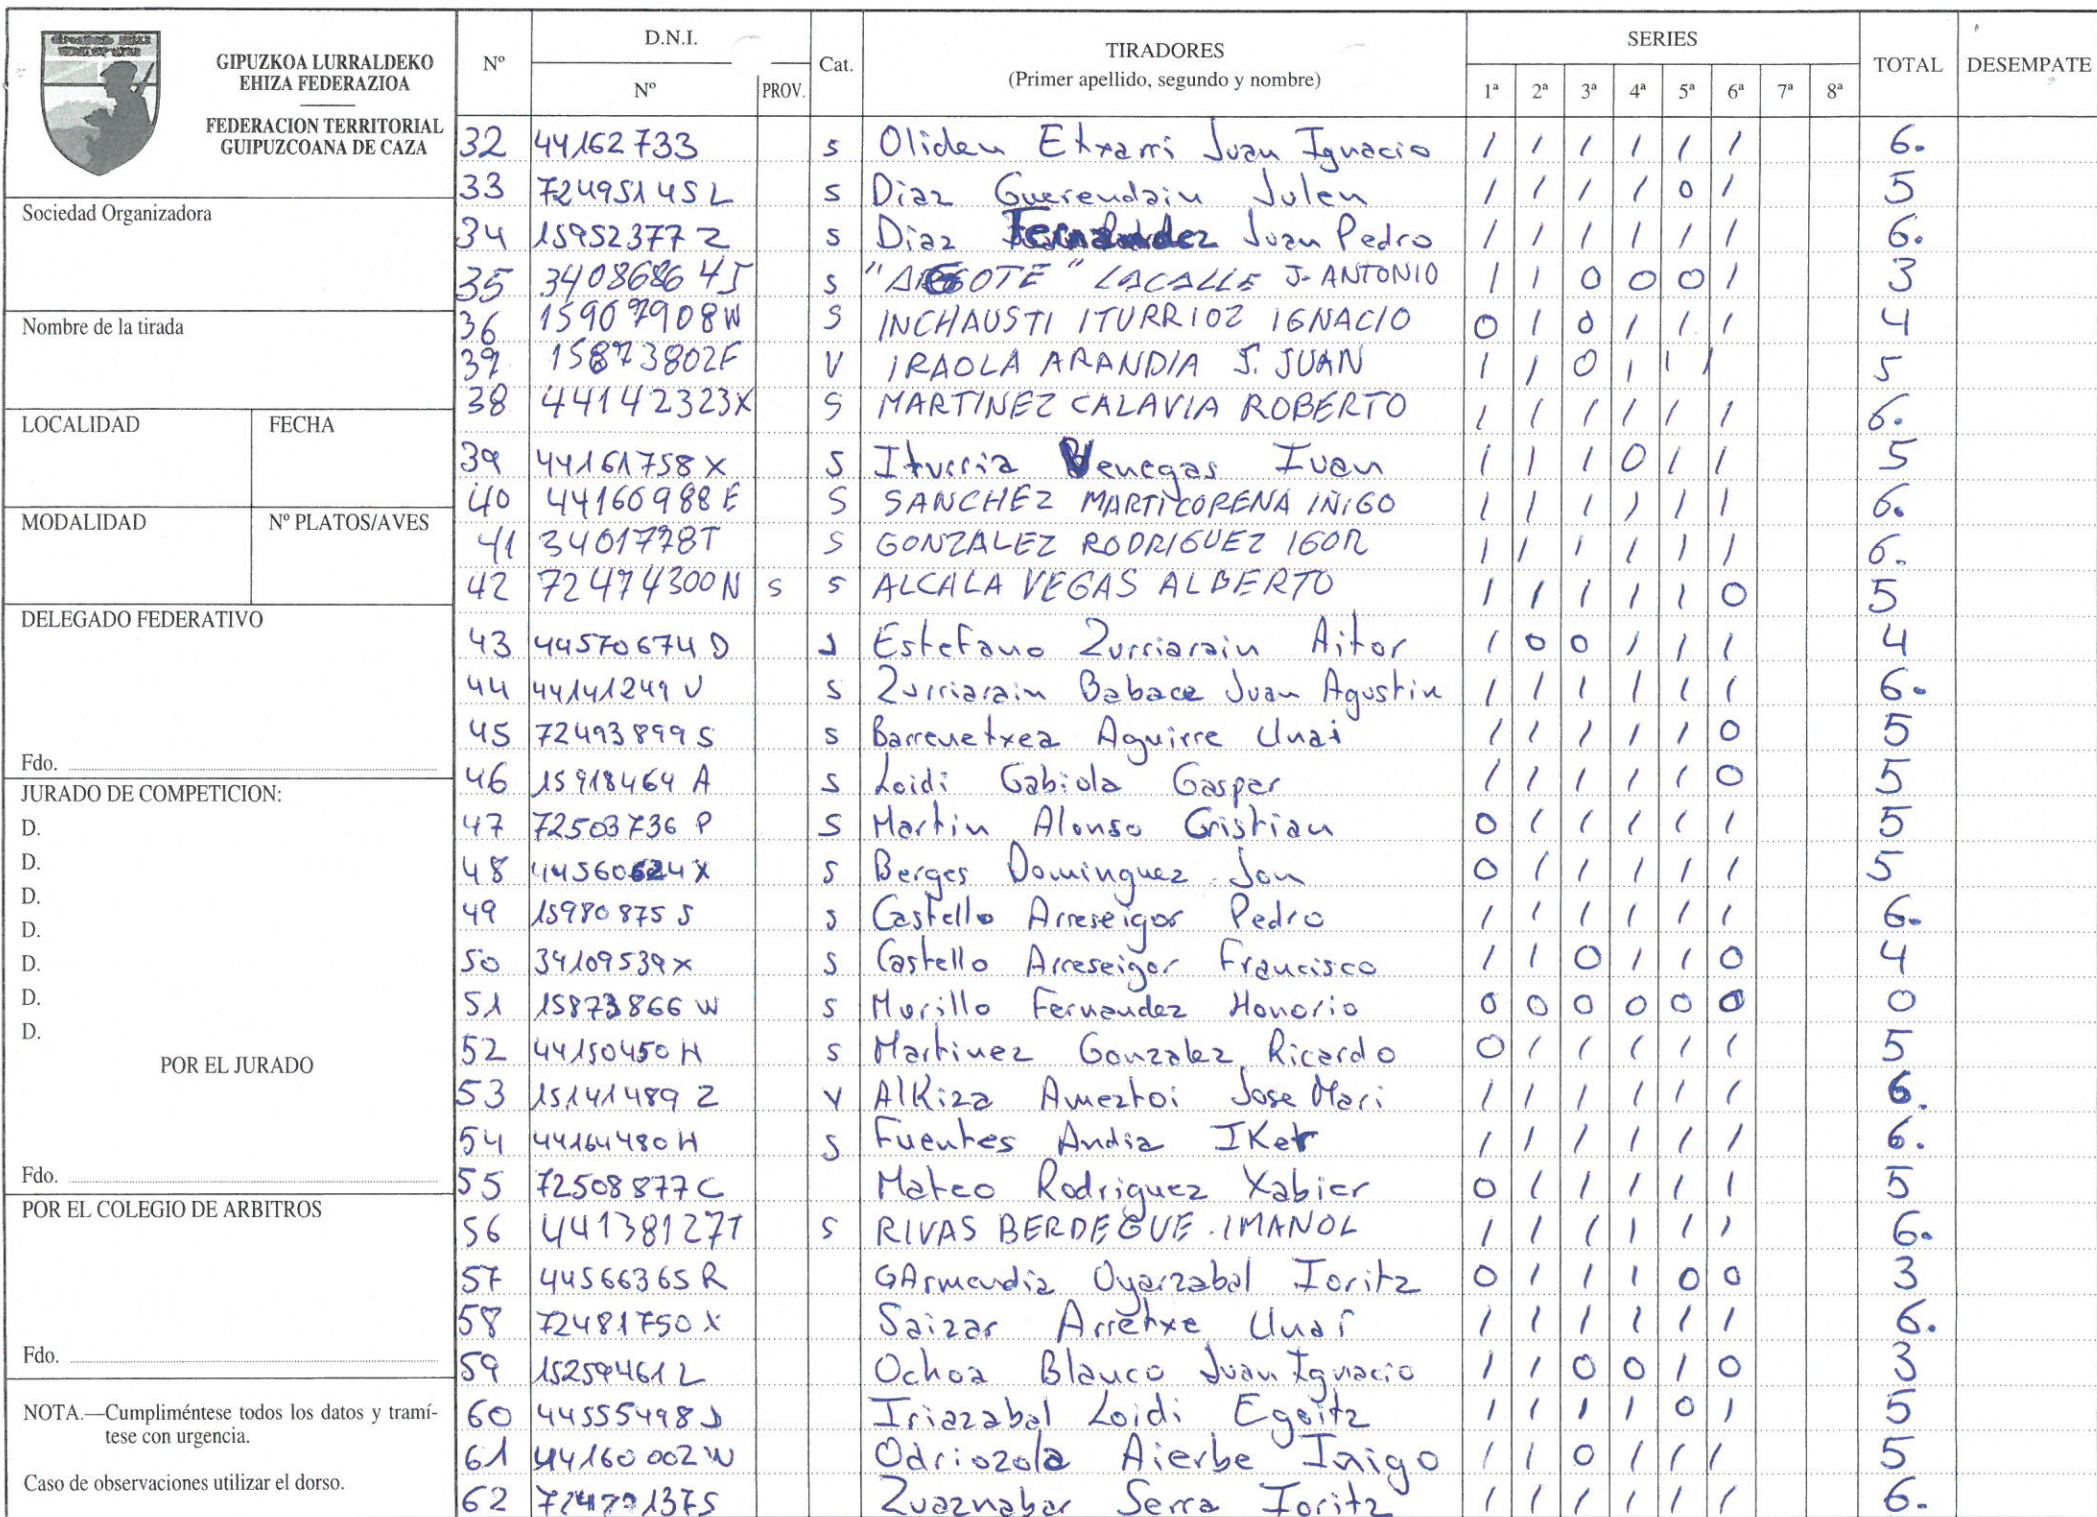 GIPUZKOA LURRALDEKO
EHIZA FEDERAZIOA
FEDERACION TERRITORIAL
GUIPUZCOANA DE CAZA
Sociedad Organizadora
Nombre de la tirada
LOCALIDAD FECHA
MODALIDAD Nº PLATOS/AVES
DELEGADO FEDERATIVO
Fdo.
JURADO DE COMPETICION:
D.
D.
D.
D.
D.
D.
D.
POR EL JURADO
Fdo.
POR EL COLEGIO DE ARBITROS
Fdo.
NOTA.—Cumpliméntese todos los datos y tramí-
tese con urgencia.
Caso de observaciones utilizar el dorso.
Nº D.N.I. Cat. TIRADORES SERIES TOTAL DESEMPATE
Nº PROV. (Primer apellido, segundo y nombre) 1ª 2ª 3ª 4ª 5ª 6ª 7ª 8ª
32 44162733 S Oliden Etxarri Juan Ignacio / / / / / / 6.
33 72495145L S Diaz Guerendain Julen / / / / 0 / 5
34 15952377Z S Diaz Fernandez Juan Pedro / / / / / / 6.
35 34086864J S "ARGOTE" LACALLE J. ANTONIO / / 0 0 0 / 3
36 15907908W S INCHAUSTI ITURRIOZ IGNACIO 0 / 0 / / / 4
37 15873802F V IRAOLA ARANDIA J. JUAN / / 0 / / / 5
38 44142323X S MARTINEZ CALAVIA ROBERTO / / / / / / 6.
39 44161758X S Iturria Venegas Ivan / / / 0 / / 5
40 44160988E S SANCHEZ MARTICORENA IÑIGO / / / / / / 6.
41 3401778T S GONZALEZ RODRIGUEZ IGOR / / / / / / 6.
42 72474300N S S ALCALA VEGAS ALBERTO / / / / / 0 5
43 44570674D J Estefano Zurriarain Aitor / 0 0 / / / 4
44 44141249V S Zurriarain Babace Juan Agustin / / / / / / 6.
45 72493899S S Barrenetxea Aguirre Unai / / / / / 0 5
46 15918464A S Loidi Gabiola Gaspar / / / / / 0 5
47 72503736P S Martin Alonso Cristian 0 / / / / / 5
48 44560624X S Berges Dominguez Jon 0 / / / / / 5
49 15980875S S Castello Arreseigor Pedro / / / / / / 6.
50 34109539X S Castello Arreseigor Francisco / / 0 / / 0 4
51 15873866W S Morillo Fernandez Honorio 0 0 0 0 0 0 0
52 44150450H S Martinez Gonzalez Ricardo 0 / / / / / 5
53 15141489Z V Alkiza Ameztoi Jose Mari / / / / / / 6.
54 44164480H S Fuentes Andia IKer / / / / / / 6.
55 72508877C Mateo Rodriguez Xabier 0 / / / / / 5
56 44138127T S RIVAS BERDEGUE IMANOL / / / / / / 6.
57 44566365R GArmendia Oyarzabal Ioritz 0 / / / 0 0 3
58 72481750X Saizar Arretxe Unai / / / / / / 6.
59 15259461L Ochoa Blanco Juan Ignacio / / 0 0 / 0 3
60 44555498J Iriazabal Loidi Egoitz / / / / 0 / 5
61 44160002W Odriozola Aierbe Inigo / / 0 / / / 5
62 Zuaznabar Serra Ioritz / / / / / / 6.